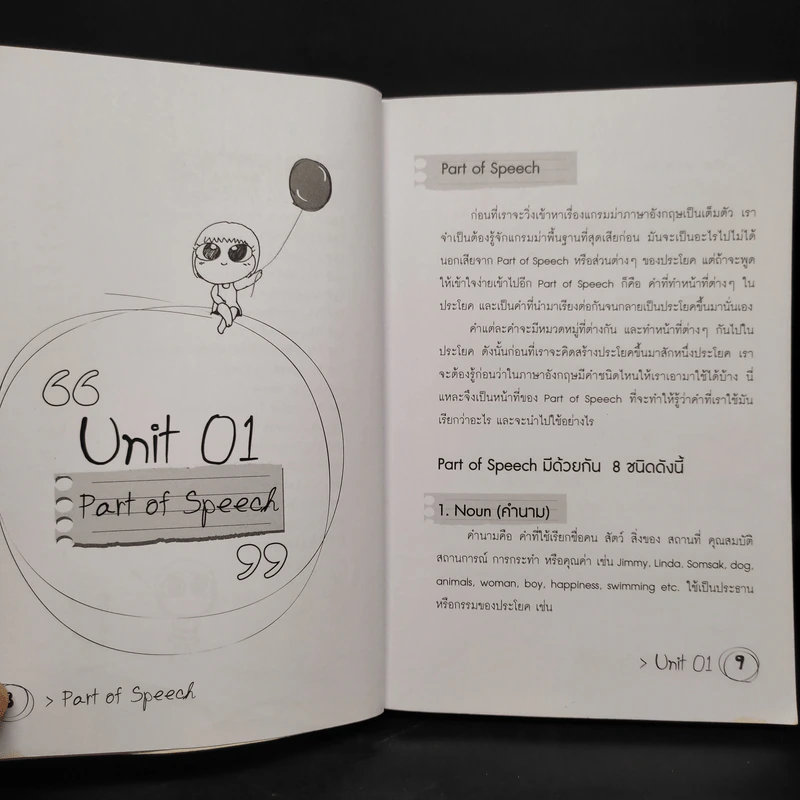 “
Unit 01
Part of Speech
”
> Part of Speech
Part of Speech
ก่อนที่เราจะวิ่งเข้าหาเรื่องแกรมม่าภาษาอังกฤษเป็นเต็มตัว เรา
จำเป็นต้องรู้จักแกรมม่าพื้นฐานที่สุดเสียก่อน มันจะเป็นอะไรไปไม่ได้
นอกเสียจาก Part of Speech หรือส่วนต่างๆ ของประโยค แต่ถ้าจะพูด
ให้เข้าใจง่ายเข้าไปอีก Part of Speech ก็คือ คำที่ทำหน้าที่ต่างๆ ใน
ประโยค และเป็นคำที่นำมาเรียงต่อกันจนกลายเป็นประโยคขึ้นมานั่นเอง
คำแต่ละคำจะมีหมวดหมู่ที่ต่างกัน และทำหน้าที่ต่างๆ กันไปใน
ประโยค ดังนั้นก่อนที่เราจะคิดสร้างประโยคขึ้นมาสักหนึ่งประโยค เรา
จะต้องรู้ก่อนว่าในภาษาอังกฤษมีคำชนิดไหนให้เราเอามาใช้ได้บ้าง นี่
แหละจึงเป็นหน้าที่ของ Part of Speech ที่จะทำให้รู้ว่าคำที่เราใช้มัน
เรียกว่าอะไร และจะนำไปใช้อย่างไร
Part of Speech มีด้วยกัน 8 ชนิดดังนี้
1. Noun (คำนาม)
คำนามคือ คำที่ใช้เรียกชื่อคน สัตว์ สิ่งของ สถานที่ คุณสมบัติ
สถานการณ์ การกระทำ หรือคุณค่า เช่น Jimmy, Linda, Somsak, dog,
animals, woman, boy, happiness, swimming etc. ใช้เป็นประธาน
หรือกรรมของประโยค เช่น
> Unit 01 9